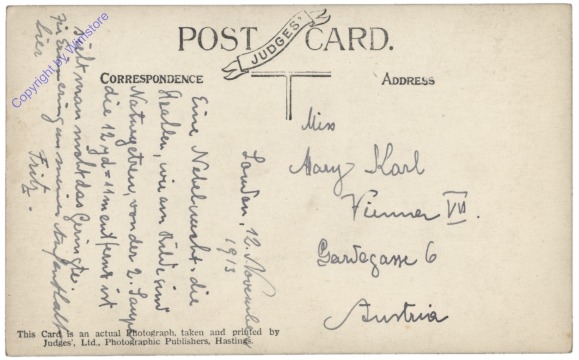 POST CARD.
JUDGES'
CORRESPONDENCE
ADDRESS
London, 12. November
1913
Eine Nebelnacht. die
Strahlen, wie am Bilde sind
Naturgetreu, von der 2. Lampe
die 12 yd = 11 m entfernt ist
sieht man nicht das Geringste.
Zur Erinnerung an meinen Aufenthalt
hier
Fritz.
Miss
Mary Karl
Vienna VII.
Gardegasse 6
Austria
This Card is an actual Photograph, taken and printed by
Judges', Ltd., Photographic Publishers, Hastings.
Copyright by Winstore